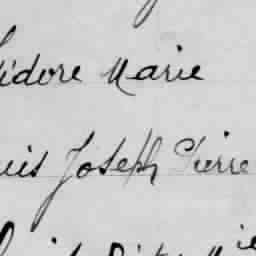 idore Marie
uis Joseph Pierre